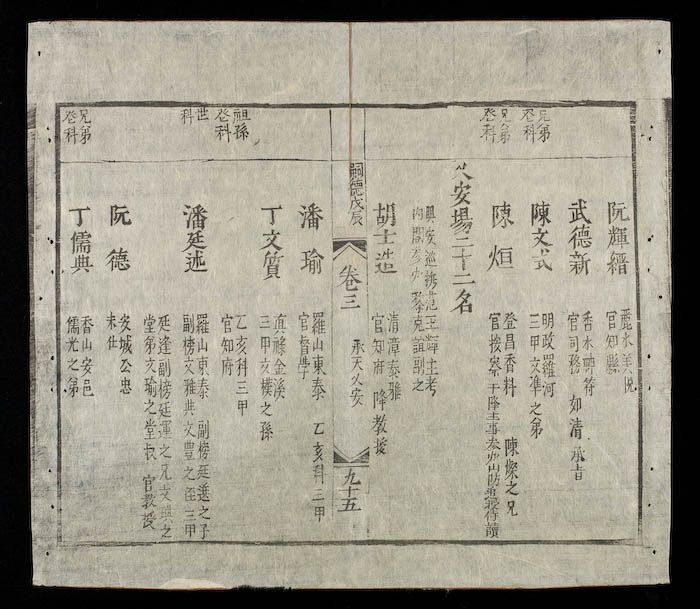 阮輝縉
麗水美悅
官知縣
武德新
香水神符
官司務 如清承旨
兄弟登科
陳文式
明政羅河
三甲文準之弟
兄弟登科
陳烜
登昌香料 陳燦之兄
官按察 干降主事叅办山防
乂安場二十二名
興安巡撫范王輝主考
內閣叅办黎克誼副之
胡士造
清漳泰雅
官知府降教授
嗣德戊辰
卷三
承天乂安
九十五
潘瑜
羅山東泰 乙亥科三甲
官督學
祖孫登科
丁文質
真祿金溪
三甲文樸之孫
乙亥科三甲
官知府
世科
潘廷述
羅山東泰 副榜廷選之子
副榜文雅典文豐之侄三甲
廷逢副榜廷運之兄文之
堂弟文瑜之堂叔 官教授
阮德
安城公忠
未仕
兄弟登科
丁儒典
香山安邑
儒光之弟